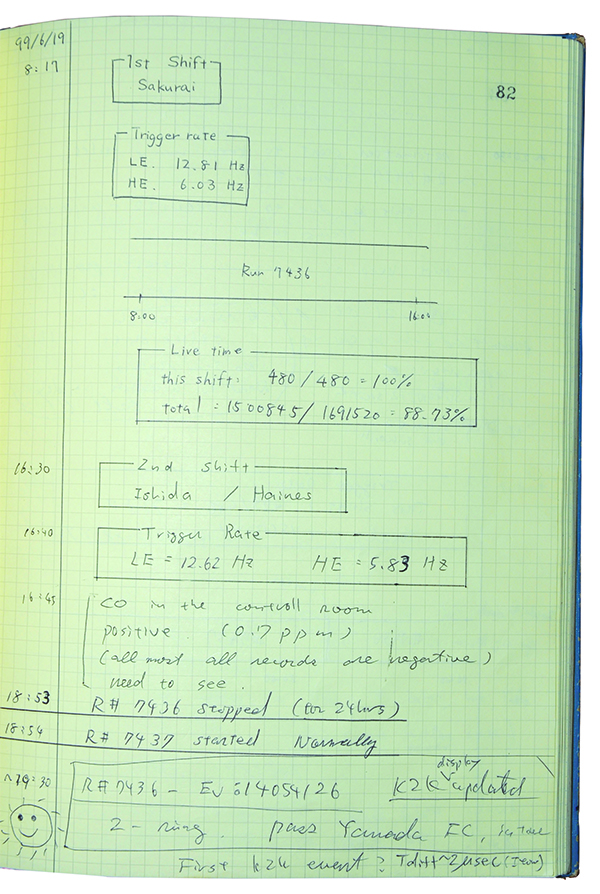 99/6/19
8:17
1st Shift
Sakurai
82
Trigger rate
LE. 12.81 Hz
HE. 6.03 Hz
Run 7436
8:00 16:00
Live time
this shift: 480/480 = 100%
total = 1500845/1691520 = 88.73%
16:30
2nd shift
Ishida / Haines
16:40
Trigger Rate
LE = 12.62 Hz HE = 5.83 Hz
16:45
CO in the controll room
positive (0.7 ppm)
(all most all records are negative)
need to see.
18:53 R# 7436 stopped (for 24hrs)
18:54 R# 7437 started Normally
~19:30 R# 7436 - Ev: 14054126 K2K display updated
2-ring. pass Yamada FC, in time
First K2K event? Tdiff~2μsec